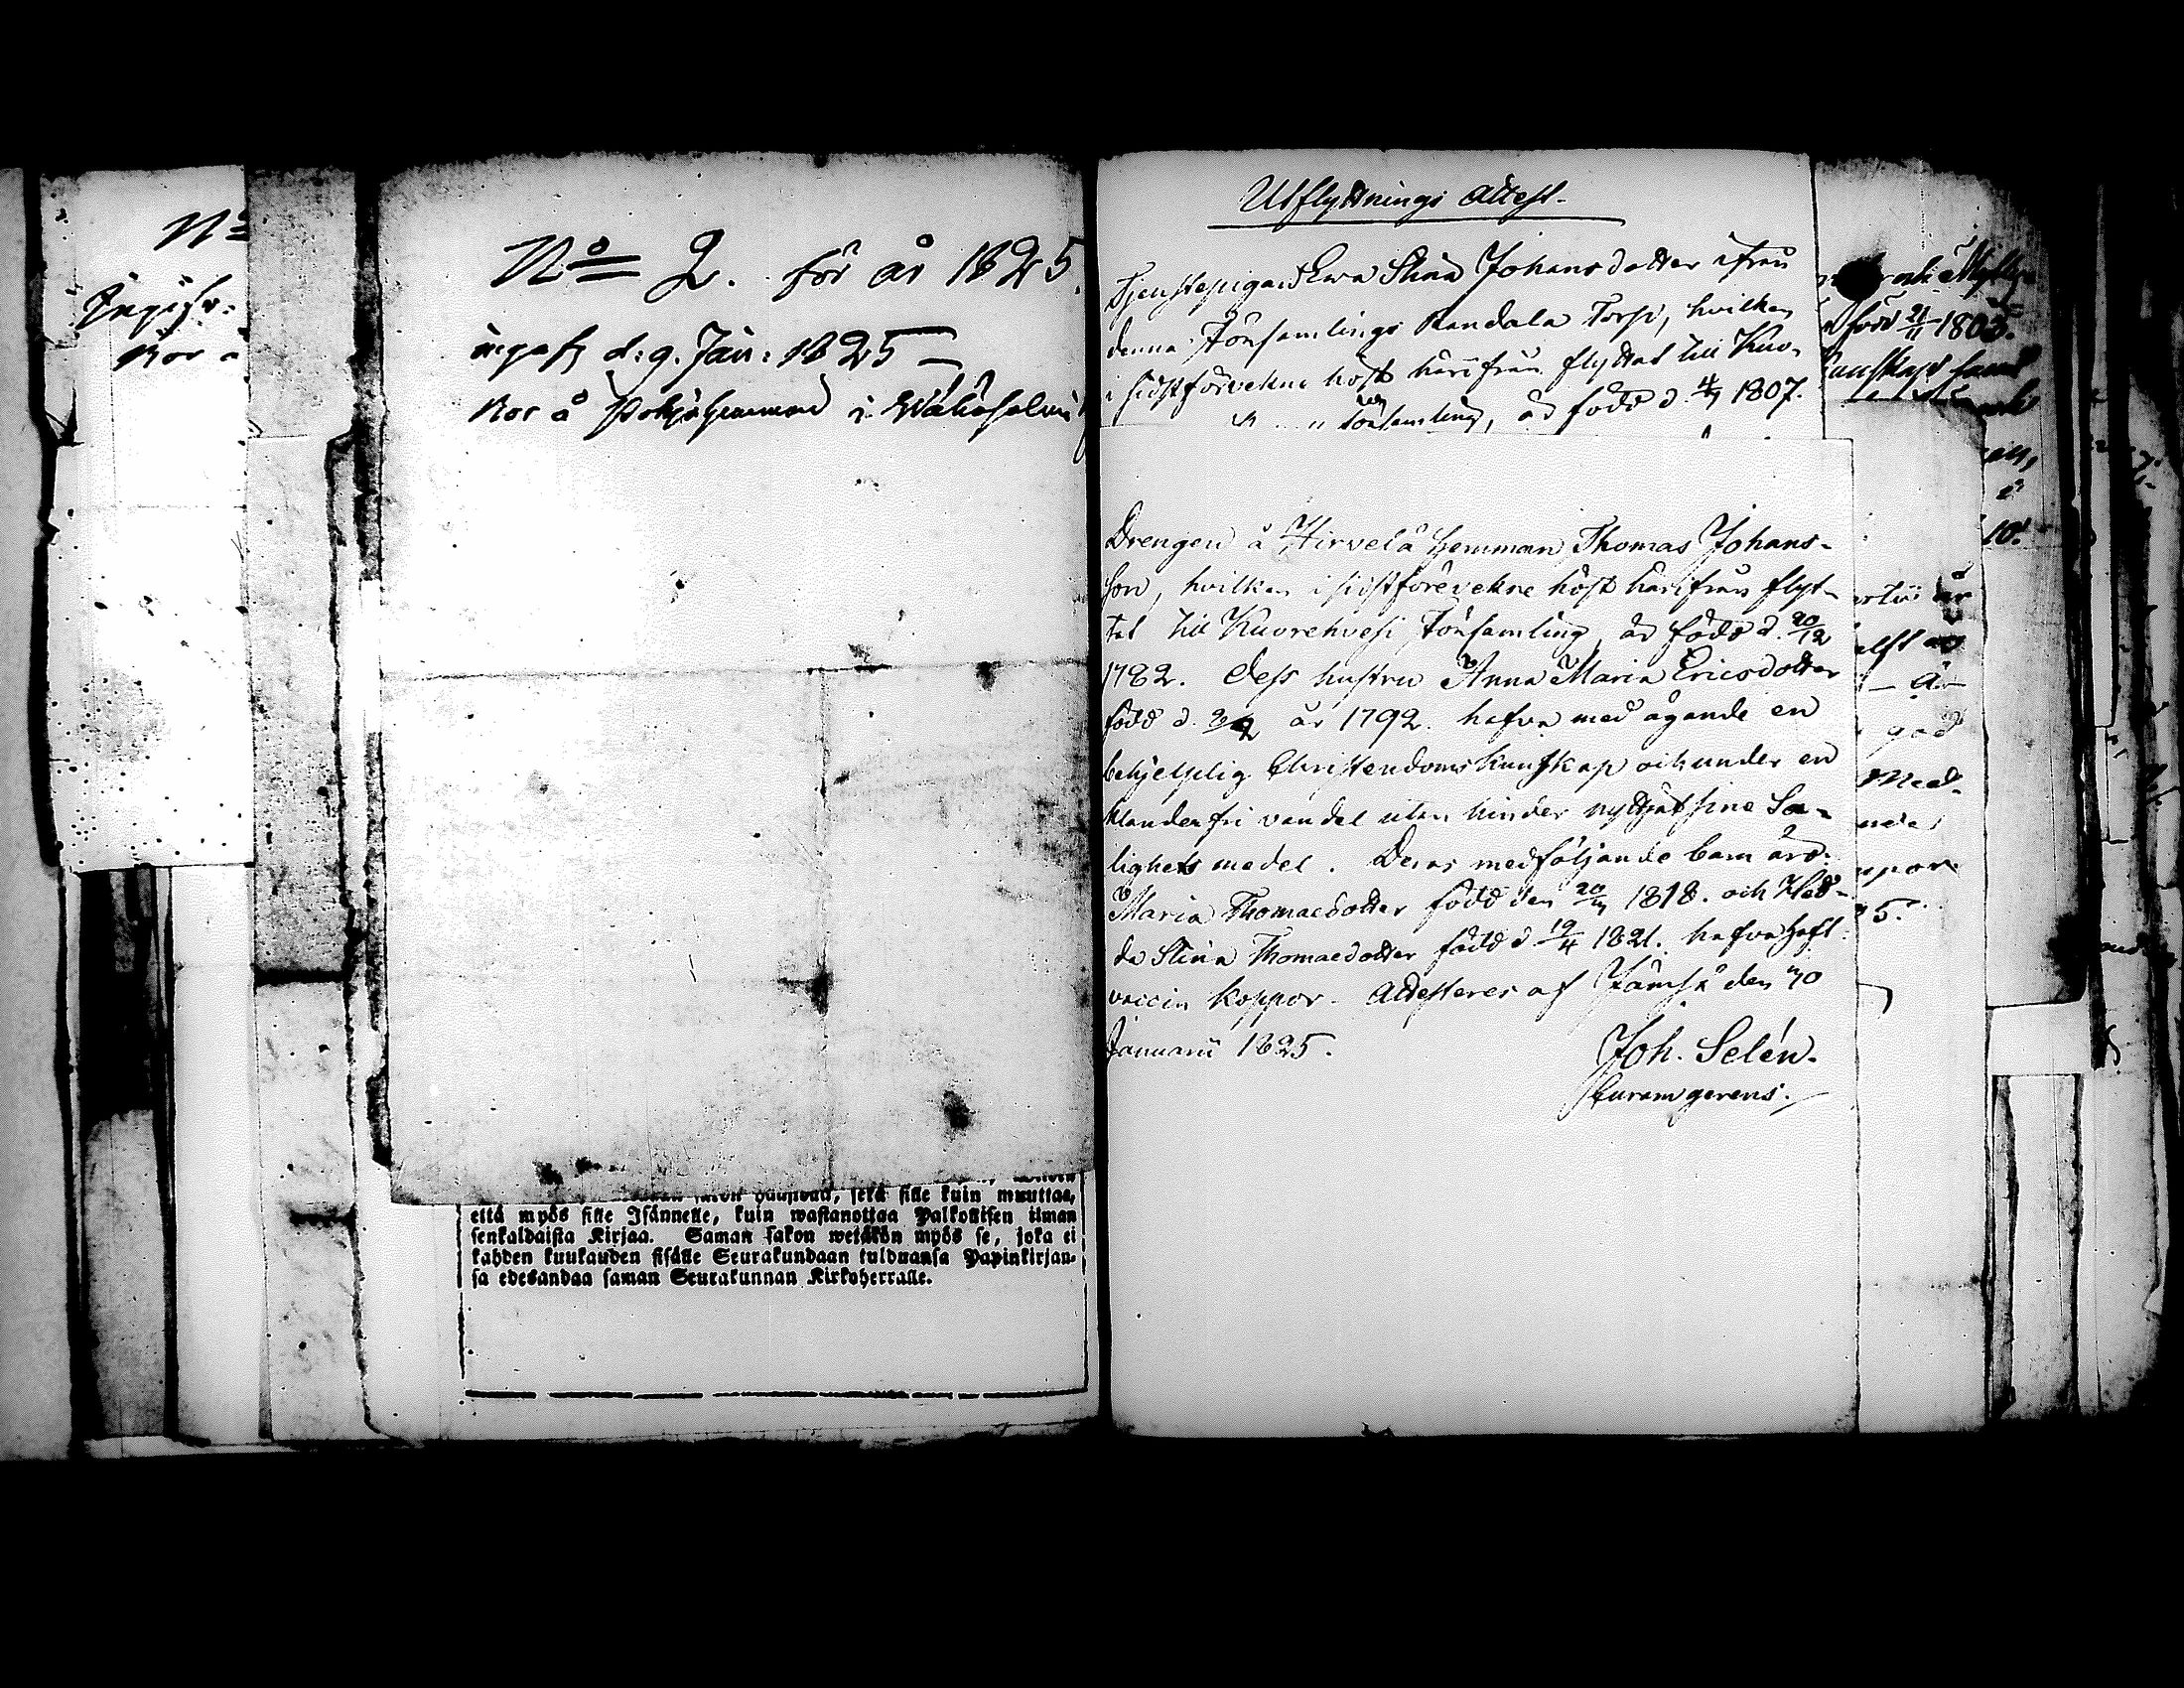 No
Ingifv:
Bor å
No 2. för år 1825.
ingafs d: 9. Jan: 1825
Bor å Pohja hemmand i Wähäsalmi
sekä sille kuin muuttaa,
että myös sille Isännelle, kuin wastanottaa Palkollisen ilman
senkaldaista Kirjaa. Saman sakon wetäkön myös se, joka ei
kahden kuukauden sisälle Seurakundaan tulduansa Papinkirjan-
sa edesandaa saman Seurakunnan Kirkoherralle.
Utflyttnings Attest.
Tjenstepigan Ewa Stina Johansdotter ifrån
denna Församlings Kandala Torp, hvilken
i sidstförvekne höst härifrån flyttat till Kuo-
församling, är född d. 4/7 1807.
Drengen å Hirvelä Hemman Thomas Johans-
son, hvilken i sidstförevekne höst härifrån flyt-
tat till Kuorehvesi Församling, är född d. 20/12
1782. Dess hustru Anna Maria Ericsdotter
född d. år 1792. hafva med ägande en
behjelplig Christendomskunskap och under en
klanderfri vandel utan hinder nyttjat sine Sa-
lighets medel. Deras medföljande barn äro:
Maria Thomaedotter född den 20/7 1818. och Hed-
da Stina Thomaedotter född d 19/4 1821. hafva haft
vaccin koppor. Attesteres af Jämsä den 10
Januarii 1825.
Joh. Selén.
Curam gerens.
född 21/11 1803.
Kunskap samt
10.
är
god
Med-
5.